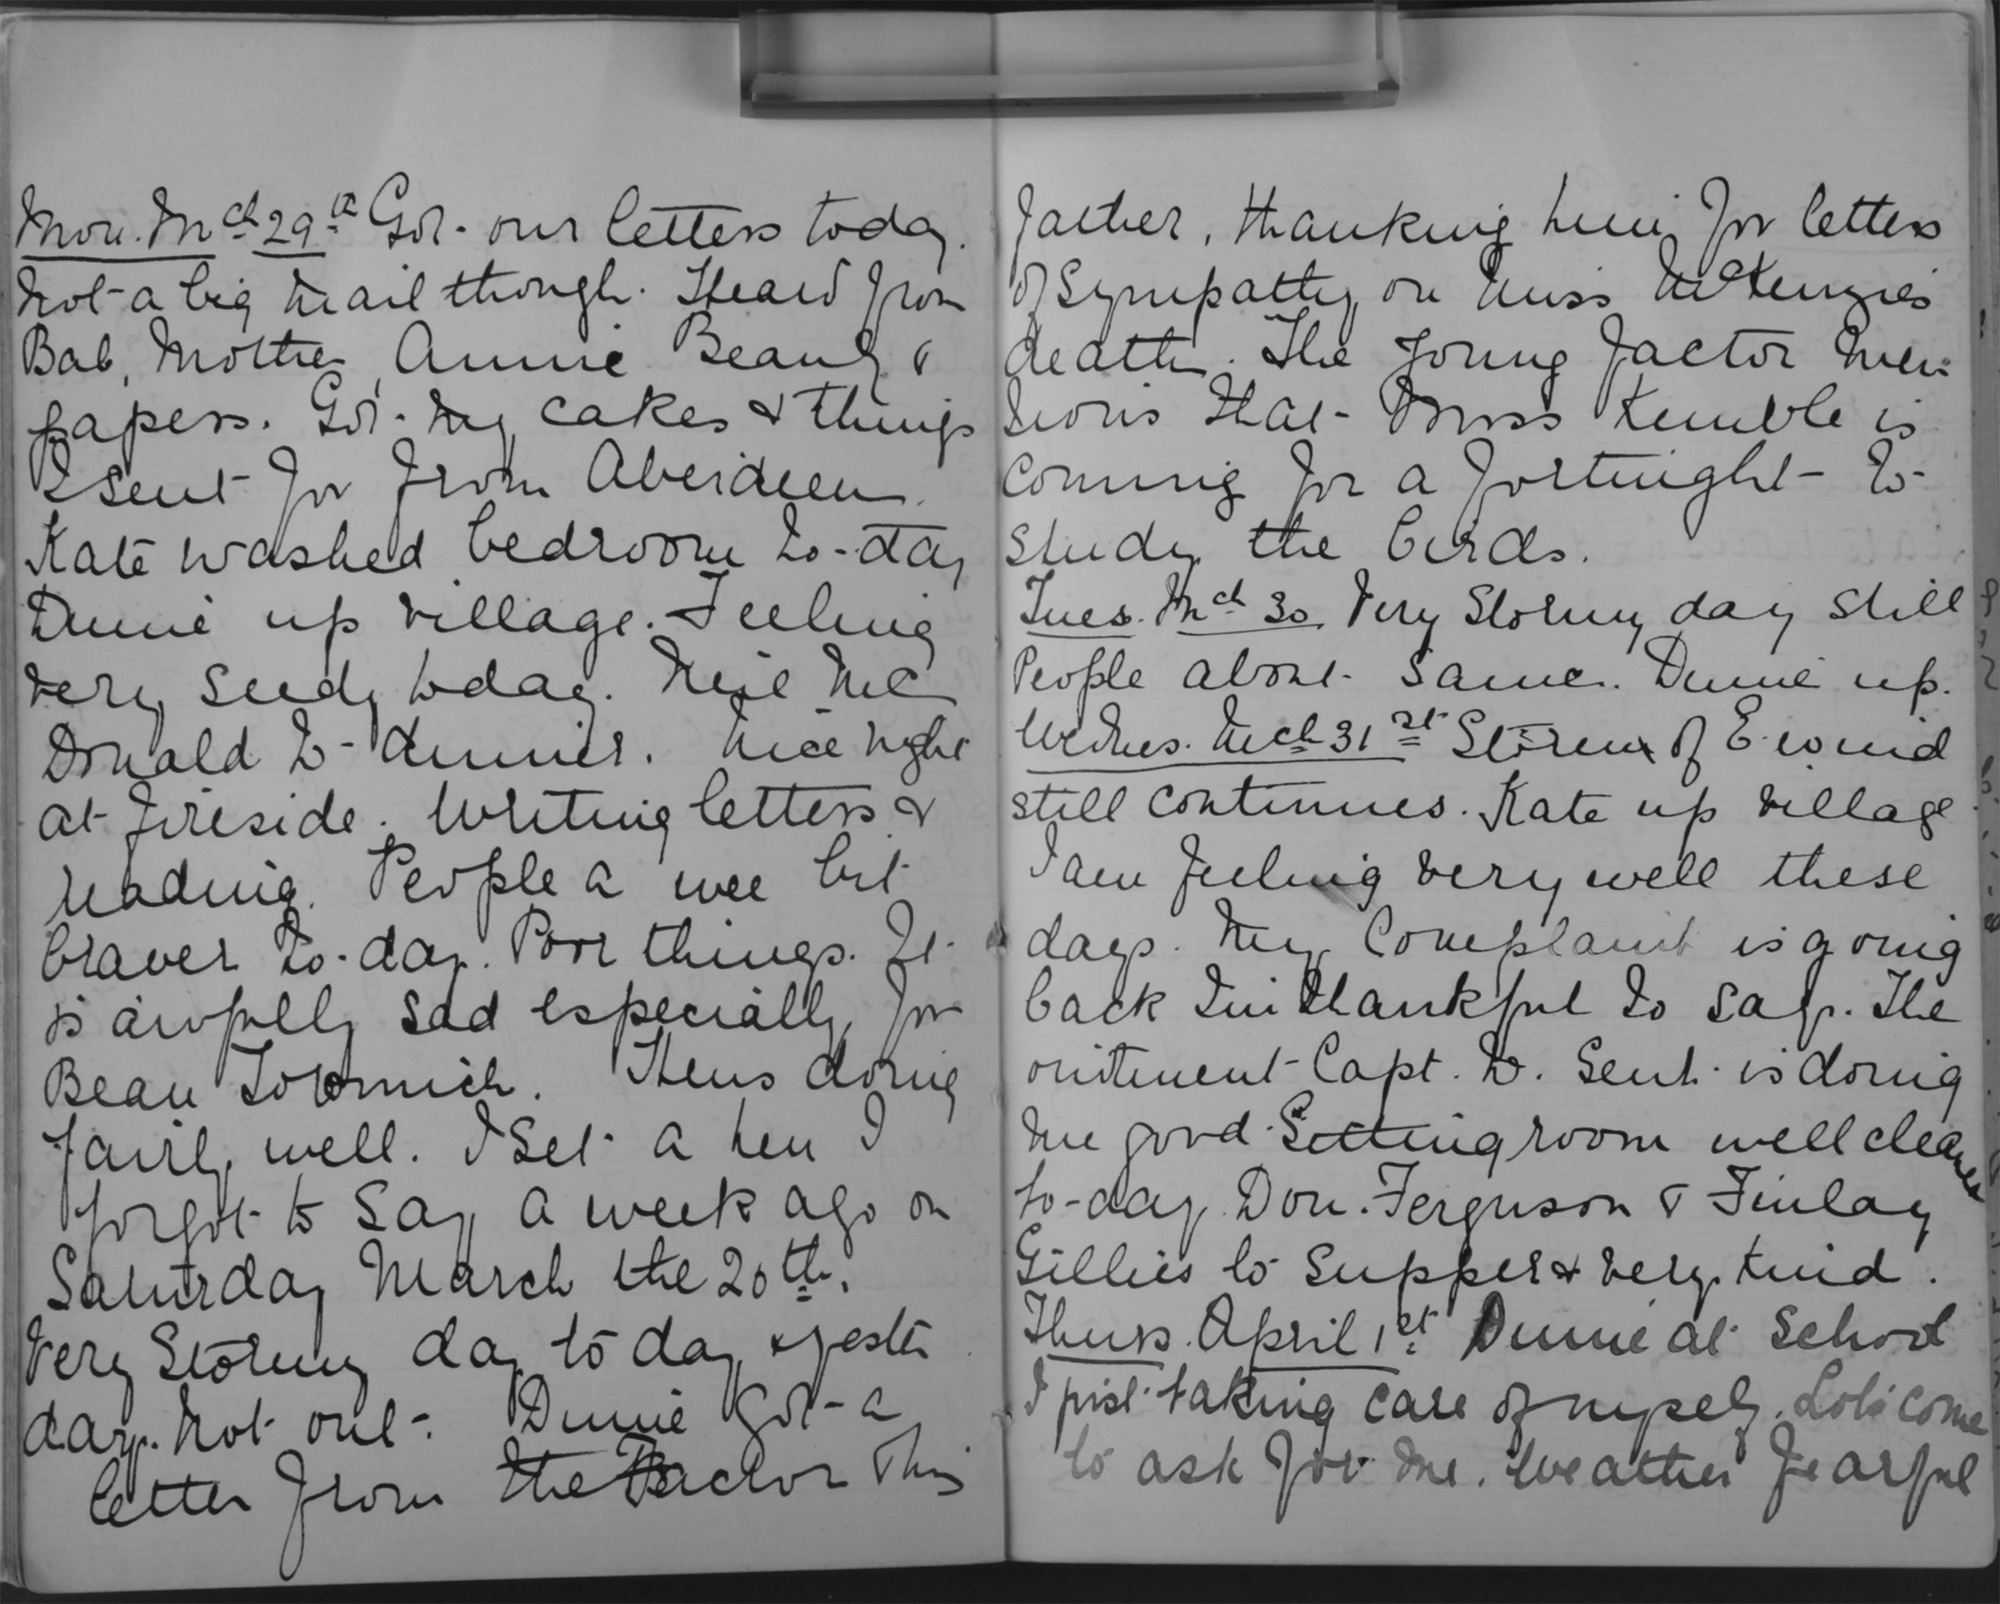 Mon. Mch 29th Got our letters today.
Not a big mail though. Heard from
Bab, Mother, Annie Beauly &
papers. Got my cakes & things
I sent for from Aberdeen.
Kate washed bedroom to-day
Dunie up village. Feeling
very seedy today. Neil Mc
Donald to dinner. Nice night
at fireside. Writing letters &
reading. People a wee bit
braver to-day. Poor things. It
is awfully sad especially for
Bean Tormich. Hens doing
fairly well. I set a hen I
forgot to say a week ago on
Saturday March the 20th.
Very Stormy day to day & yester
day. Not out. Dunie got a
letter from the Factor this
father, thanking him for letters
of Sympathy on Miss McKenzies
death. The young factor men-
tions that Miss Kemble is
coming for a fortnight to
study the birds.
Tues. Mch 30. Very Stormy day still
People about same. Dunie up.
Wednes. Mch 31st Storm of E. wind
still continues. Kate up village
I am feeling very well these
days. My Complaint is going
back I'm thankful to say. The
ointment Capt. W. sent is doing
me good. Sitting room well cleaned
to-day. Don. Ferguson & Finlay
Gillies to supper & very kind.
Thurs. April 1st. Dunie at School
I just taking care of myself. Lots come
to ask for me. Weather fearful